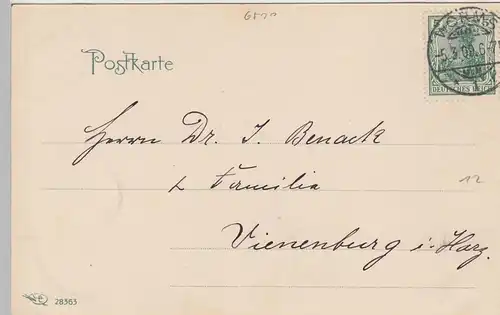 Postkarte
DEUTSCHES REICH
Herrn Dr. J. Benack
& Familie
12
Vienenburg i. Harz.
28363